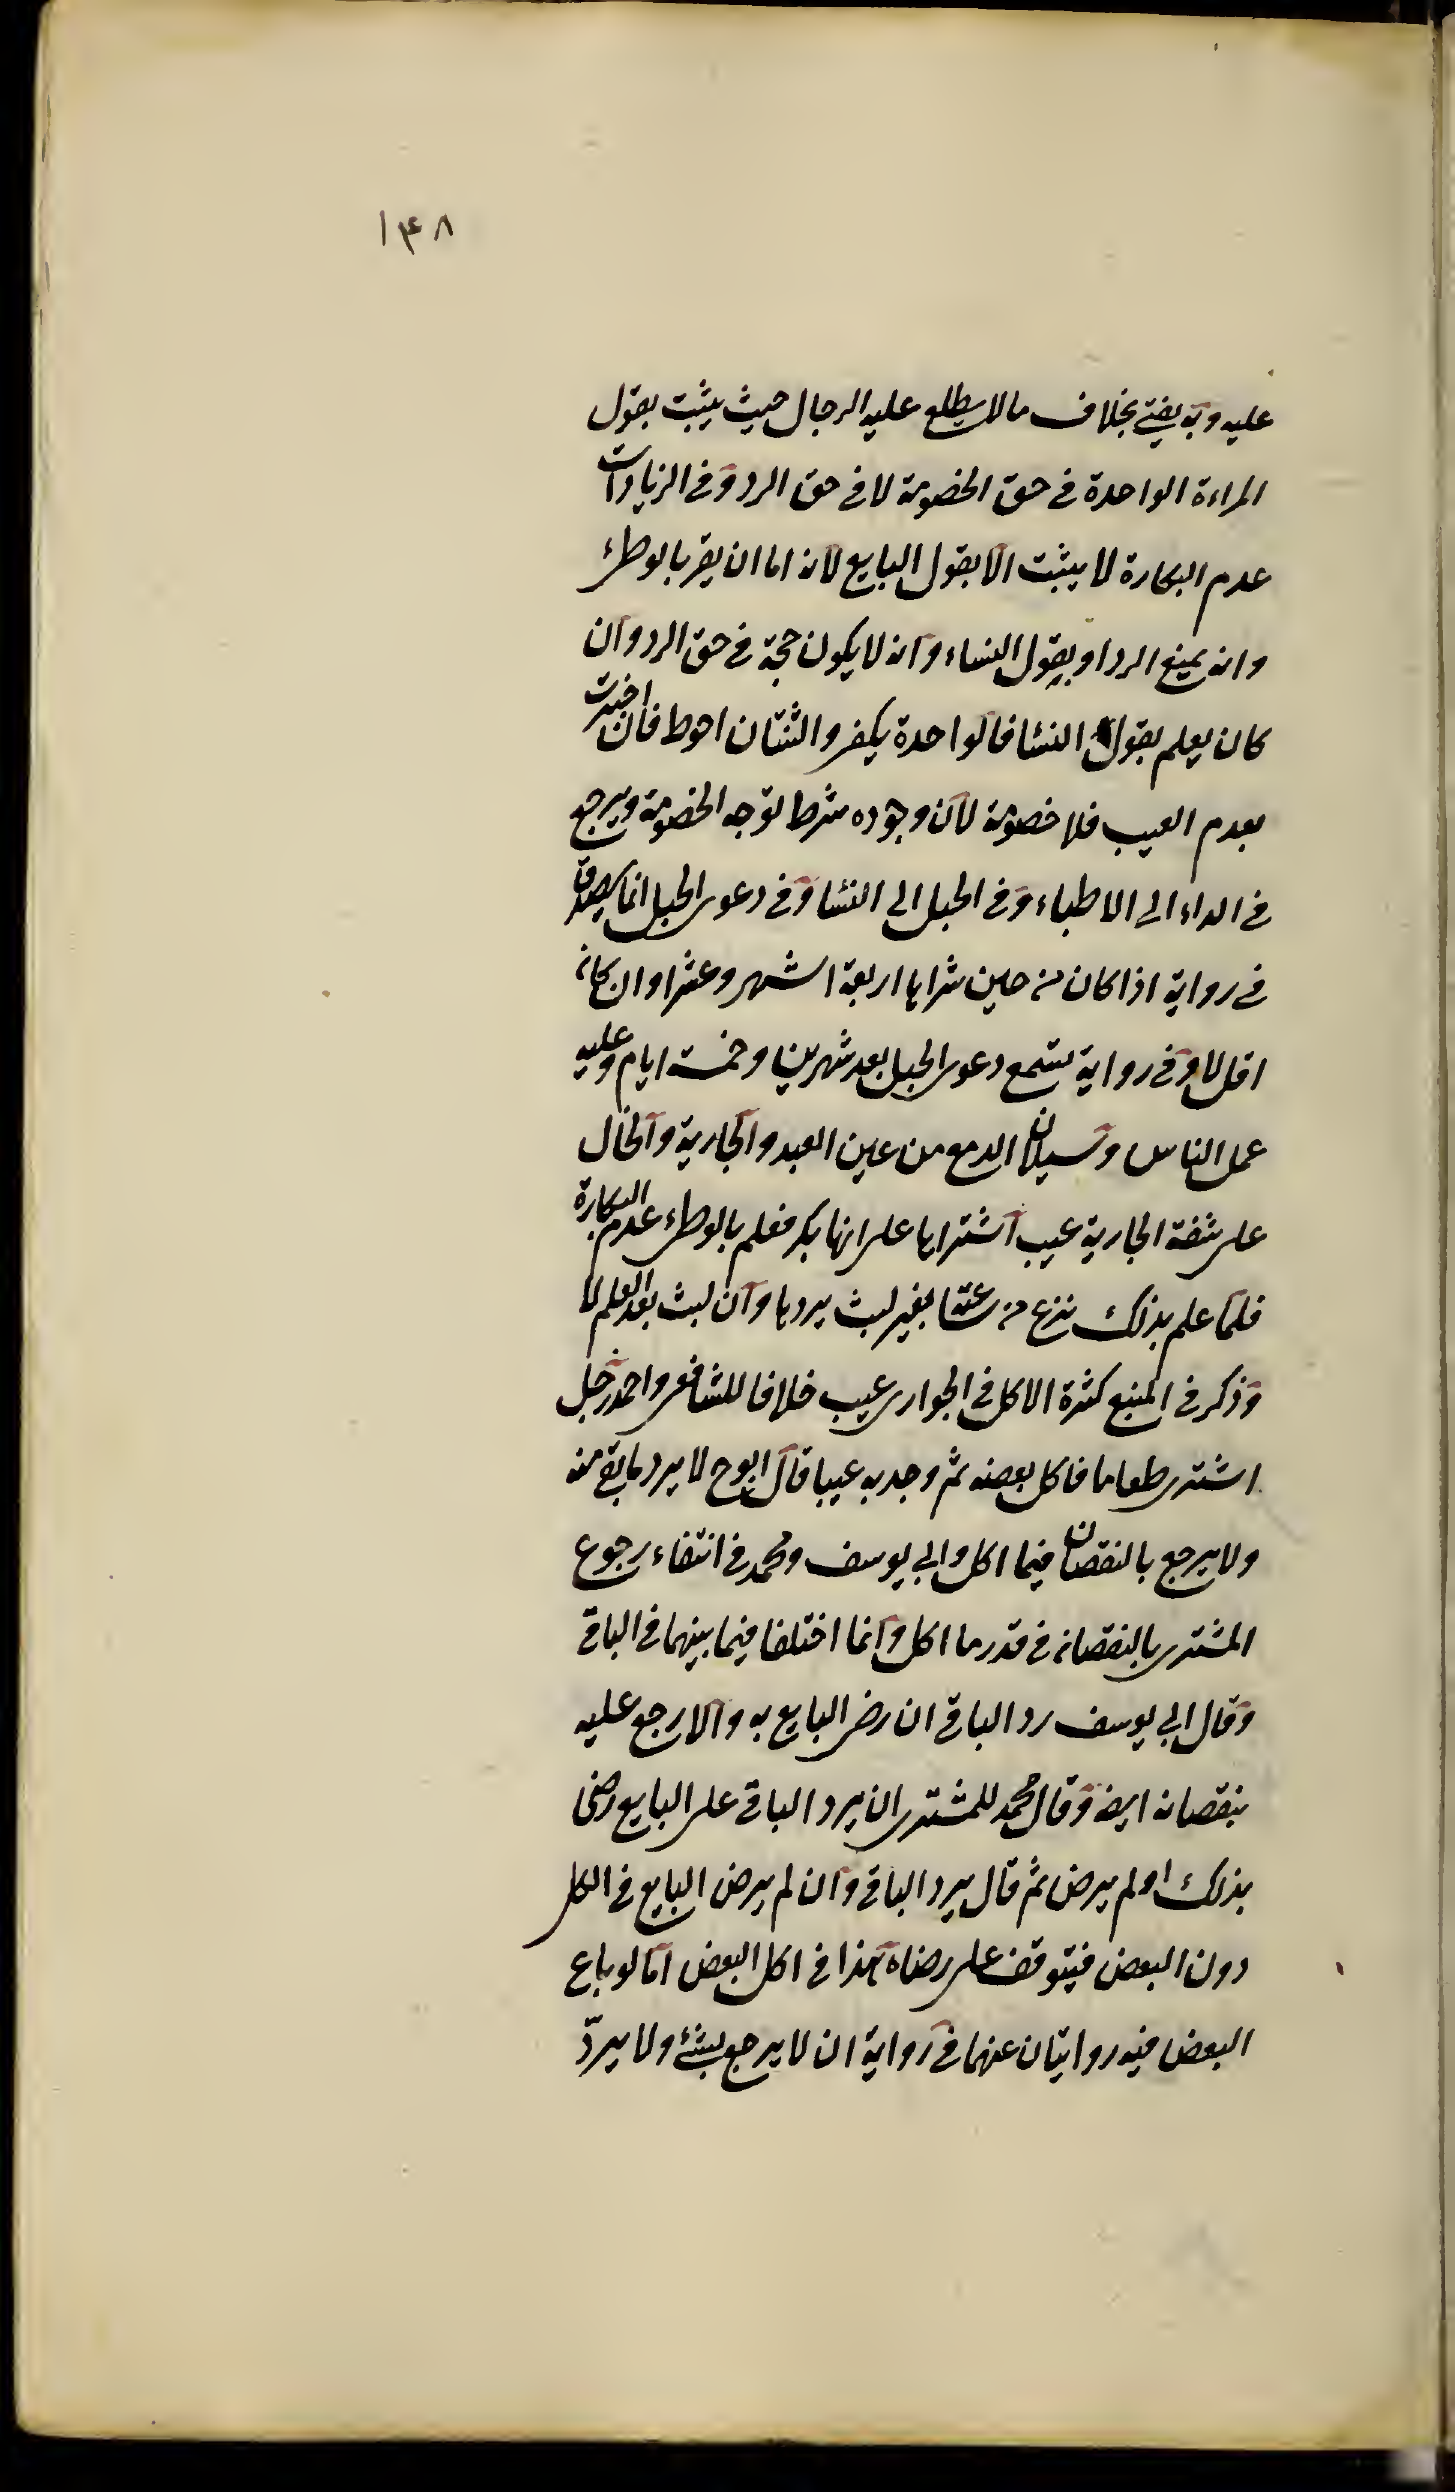 ۱۴۸
عليه وبه يفتى بخلاف مالا يطلع عليه الرجال حيث يثبت بقول
المراءة الواحدة فى حق الخصومة لا فى حق الرد وفى الزيادات
عدم البكارة لا يثبت الا بقول البايع لانه اما ان يقر بالوطئ
وانه يمنع الرد او بقول النساء وانه لا يكون حجة فى حق الرد وان
كان يعلم بقول النسا فالواحدة يكفر والثنتان احوط فان اخبرت
بعدم العيب فلا خصومة لان وجوده شرط لتوجه الخصومة ويرجع
فى الداء الى الاطباء وفى الحبل الى النسا وفى دعوى الحبل انما يصدق
فى رواية اذا كان من حين شراها اربعة اشهر وعشرا وان كان
اقل لا وفى رواية تسمع دعوى الحبل بعد شهرين وخمسة ايام وعليه
عمل الناس وسيلان الدمع من عين العبد والجارية والخال
على شفة الجارية عيب اشتراها على انها بكر فعلم بالوطئ عدم البكارة
فلما علم بذلك نزع من ساعته بغير لبث يردها وان لبث بعد العلم لا
وذكر فى المنبع كثرة الاكل فى الجوارى عيب خلافا للشافعى واحمد رجل
اشترى طعاما فاكل بعضه ثم وجد به عيبا قال ابوح لا يرد ما بقى منه
ولا يرجع بالنقصان فيما اكل وابى يوسف ومحمد فى انتفاء رجوع
المشترى بالنقصان فى قدر ما اكل وانما اختلفا فيما بينهما فى الباقى
وقال ابى يوسف رد الباقى ان رضى البايع به والا رجع عليه
بنقصانه ايضه وقال محمد للمشترى ان يرد الباقى على البايع رضى
بذلك او لم يرض ثم قال يرد الباقى وان لم يرض البايع فى الكل
دون البعض فيتوقف على رضاه هذا فى اكل البعض اما لو باع
البعض فيه روايتان عنهما فى رواية ان لا يرجع بشئ ولا يردّ